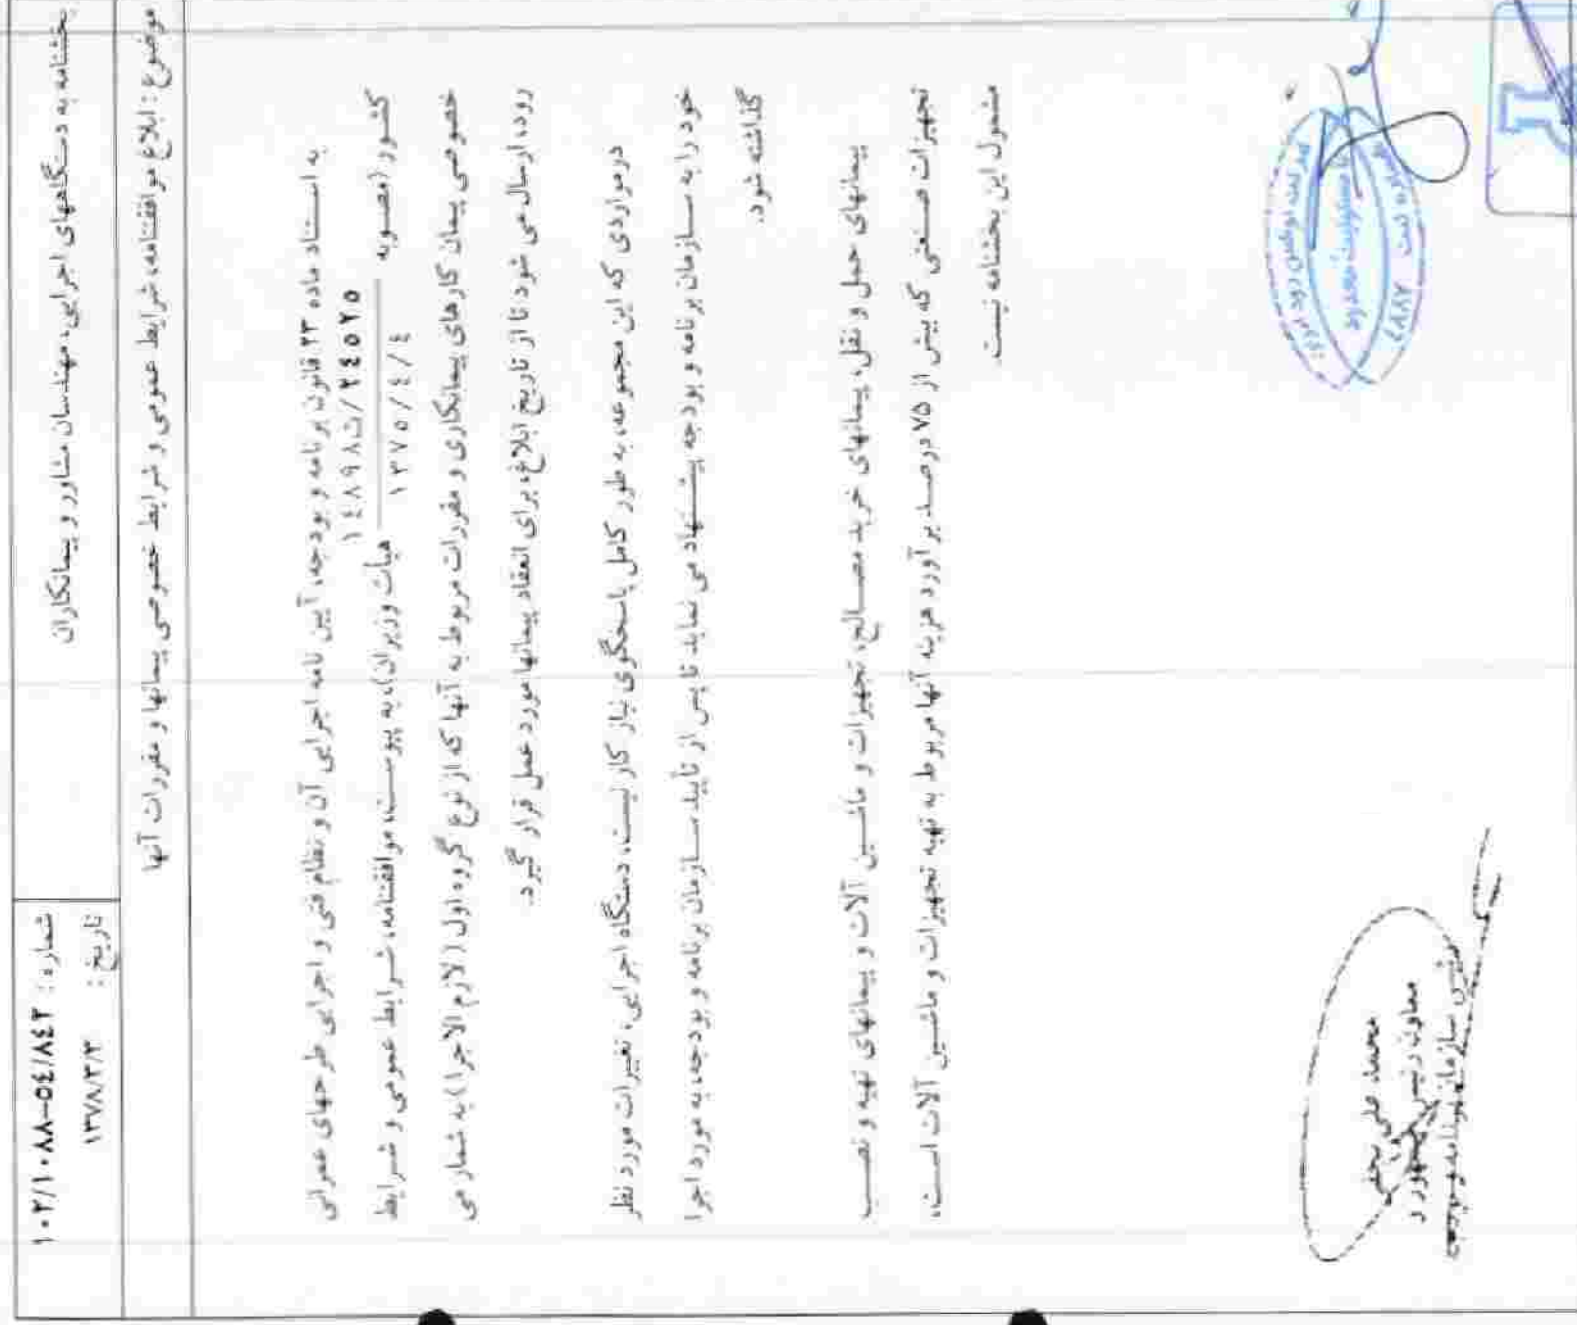 بخشنامه به دستگاههای اجرایی، مهندسان مشاور و پیمانکاران
شماره: ۱۰۲/۱۰۸۸-۵٤/۸٤۲
تاریخ: ۱۳۷۸/۳/۳
موضوع: ابلاغ موافقتنامه، شرایط عمومی و شرایط خصوصی پیمانها و مقررات آنها
به استناد ماده ۲۳ قانون برنامه و بودجه، آیین نامه اجرایی آن و نظام فنی و اجرایی طرحهای عمرانی
کشور (مصوبه ۲٤۵۲۵/ت۱٤۸۹۸ ۱۳۷۵/٤/٤ هیأت وزیران)، به پیوست، موافقتنامه، شرایط عمومی و شرایط
خصوصی پیمان کارهای پیمانکاری و مقررات مربوط به آنها که از نوع گروه اول (لازم الاجرا) به شمار می
رود، ارسال می شود تا از تاریخ ابلاغ، برای انعقاد پیمانها مورد عمل قرار گیرد.
درمواردی که این مجموعه، به طور کامل پاسخگوی نیاز کار نیست، دستگاه اجرایی، تغیرات مورد نظر
خود را به سازمان برنامه و بودجه پیشنهاد می نماید تا پس از تأیید سازمان برنامه و بودجه، به مورد اجرا
گذاشته شود.
پیمانهای حمل و نقل، پیمانهای خرید مصالح، تجهیزات و ماشین آلات و پیمانهای تهیه و نصب
تجهیزات صنعتی که بیش از ۷۵ درصد برآورد هزینه آنها مربوط به تهیه تجهیزات و ماشین آلات است،
مشمول این بخشنامه نیست.
مسئولیت محدود
ثبت ۷۸۸٤
محمد علی نجفی
معاون رئیس جمهور و
رئیس سازمان برنامه و بودجه